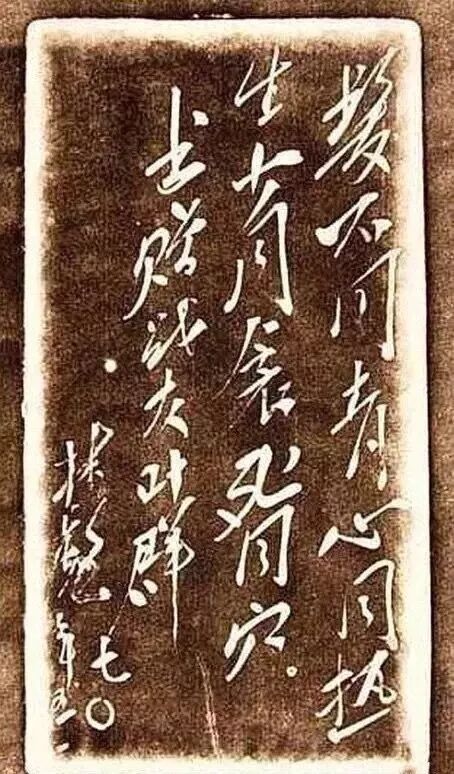 髮不同青心同热
生不同辰死同穴。
书赠战友叶群
林彪
七〇
年五一